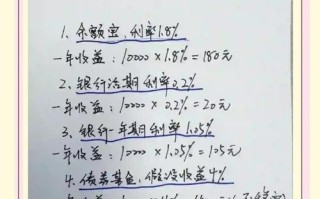 1、余额宝,利率1.8%
一年收益:10000×1.8%=180元
2、银行活期利率0.2%
一年收益:10000×0.2%=20元
3、银行一年期利率1.05%
一年收益:10000×1.05%=105元
4、债券基金,假设收益4%